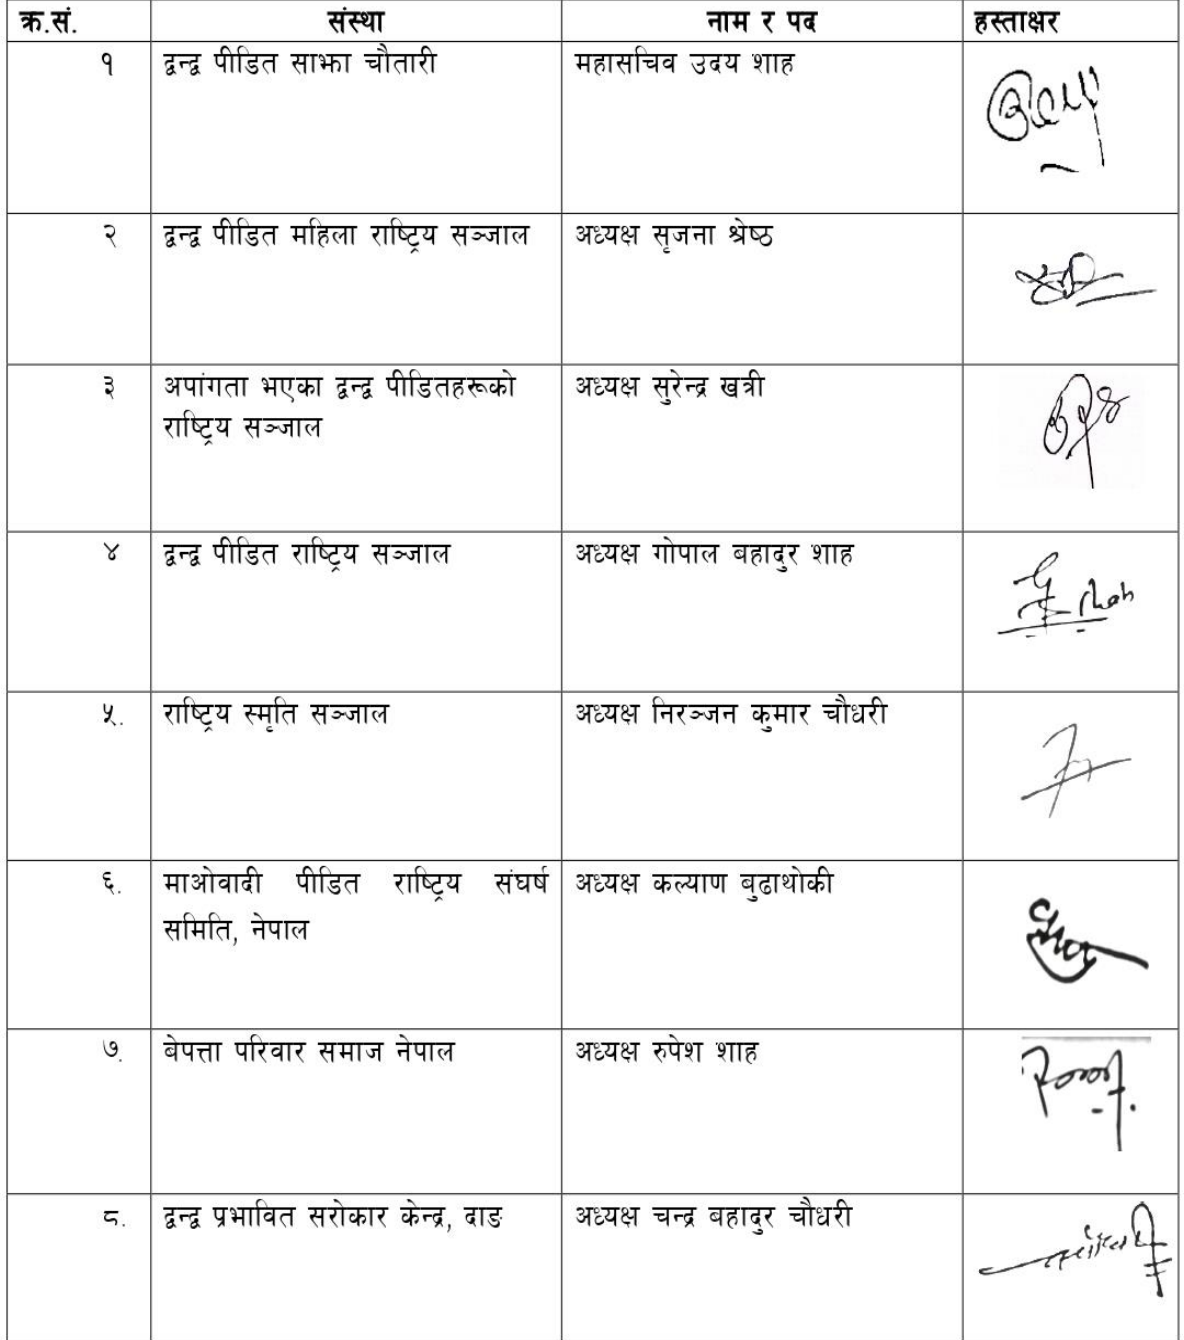 क्र.सं. संस्था नाम र पद हस्ताक्षर
१ द्वन्द्व पीडित साझा चौतारी महासचिव उदय शाह
२ द्वन्द्व पीडित महिला राष्ट्रिय सञ्जाल अध्यक्ष सृजना श्रेष्ठ
३ अपांगता भएका द्वन्द्व पीडितहरूको अध्यक्ष सुरेन्द्र खत्री
राष्ट्रिय सञ्जाल
४ द्वन्द्व पीडित राष्ट्रिय सञ्जाल अध्यक्ष गोपाल बहादुर शाह
५. राष्ट्रिय स्मृति सञ्जाल अध्यक्ष निरञ्जन कुमार चौधरी
६. माओवादी पीडित राष्ट्रिय संघर्ष अध्यक्ष कल्याण बुढाथोकी
समिति, नेपाल
७. बेपत्ता परिवार समाज नेपाल अध्यक्ष रुपेश शाह
८. द्वन्द्व प्रभावित सरोकार केन्द्र, दाङ अध्यक्ष चन्द्र बहादुर चौधरी